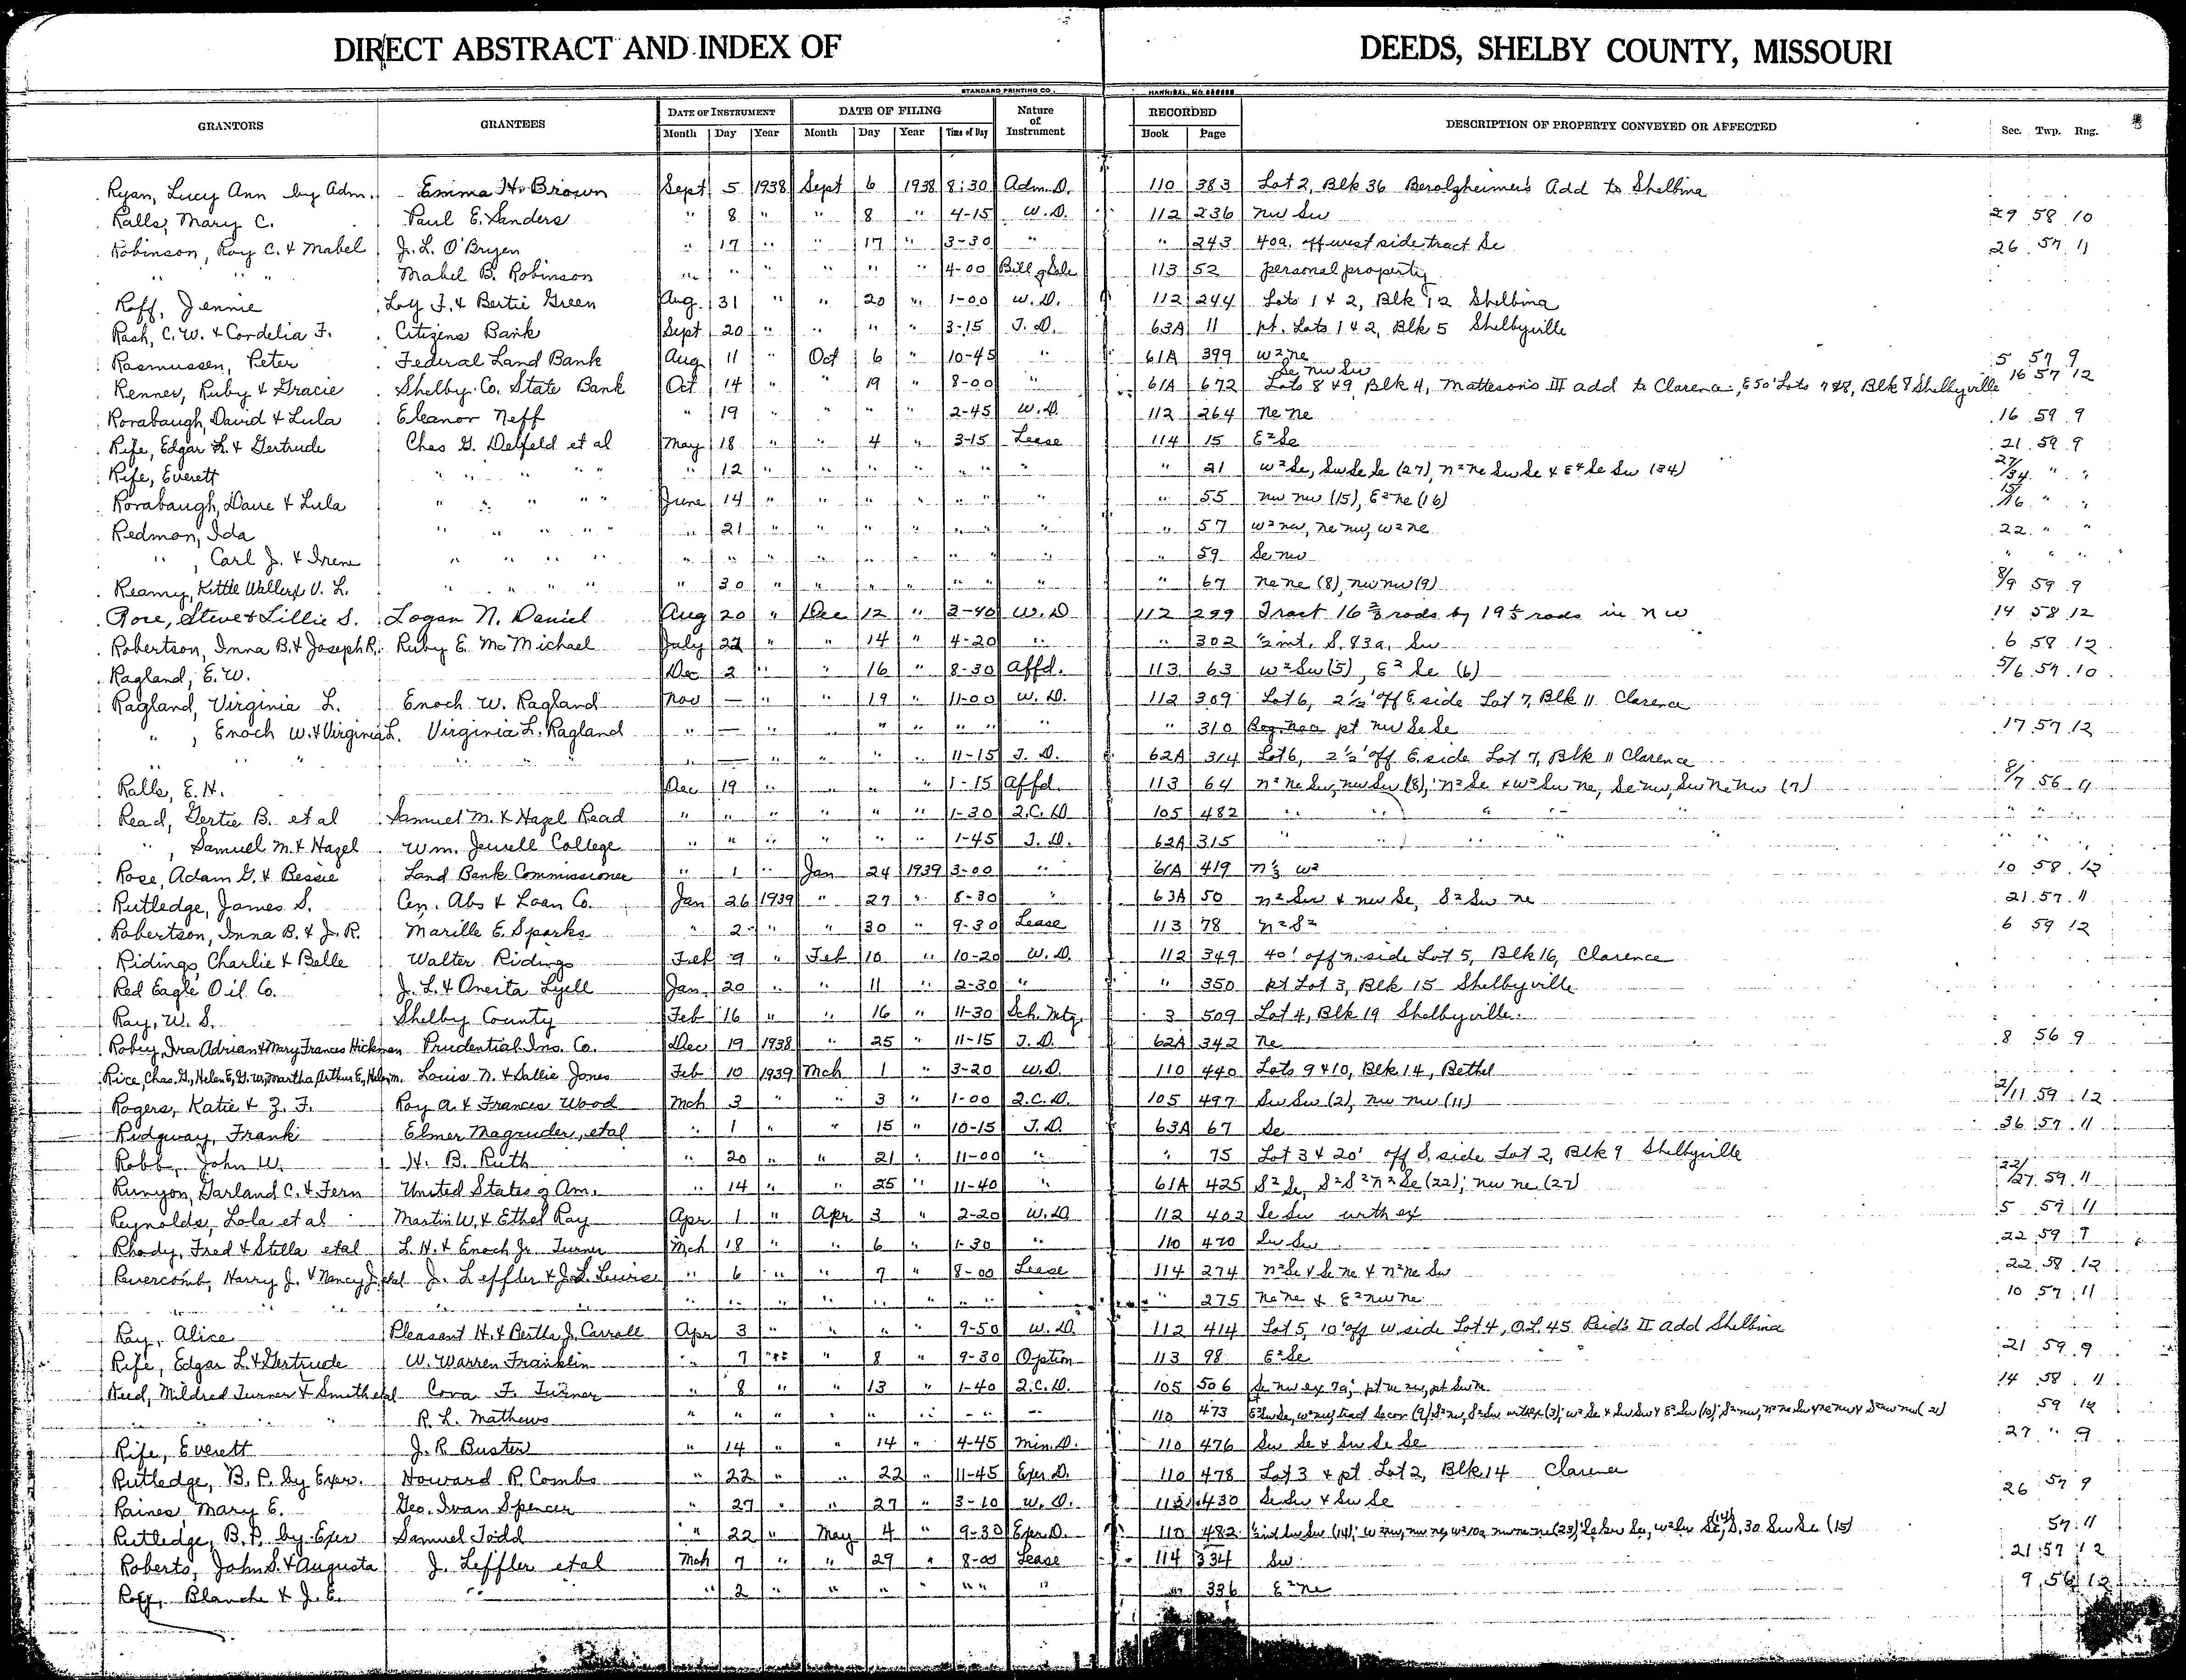 DIRECT ABSTRACT AND INDEX OF DEEDS, SHELBY COUNTY, MISSOURI
STANDARD PRINTING CO., HANNIBAL, MO.
GRANTORS GRANTEES DATE OF INSTRUMENT DATE OF FILING Nature of Instrument RECORDED DESCRIPTION OF PROPERTY CONVEYED OR AFFECTED Sec. Twp. Rng.
Month Day Year Month Day Year Time of Day Book Page
Ryan, Lucy Ann by Adm. Emma H. Brown Sept 5 1938 Sept 6 1938 8:30 Adm. D. 110 383 Lot 2, Blk 36 Berolzheimer's Add to Shelbina
Ralls, Mary C. Paul E. Sanders " 8 " " 8 " 4-15 W.D. 112 236 nw Sw 29 58 10
Robinson, Roy C. & Mabel J. L. O'Bryen " 17 " " 17 " 3-30 " " 243 40a. off west side tract Se 26 57 11
" " " Mabel B. Robinson " " " " " " 4-00 Bill of Sale 113 52 personal property
Roff, Jennie Loy F. & Bertie Green Aug. 31 " " 20 " 1-00 W.D. 112 244 Lots 1 & 2, Blk 12 Shelbina
Rash, C. W. & Cordelia F. Citizens Bank Sept 20 " " " " 3-15 T.D. 63A 11 pt. Lots 1 & 2, Blk 5 Shelbyville
Rasmussen, Peter Federal Land Bank Aug 11 " Oct 6 " 10-45 " 61A 399 W² ne 5 57 9
Se nw Sw 16 57 12
Renner, Ruby & Gracie Shelby Co. State Bank Oct 14 " " 19 " 8-00 " 61A 672 Lots 8 & 9, Blk 4, Matteson's III add to Clarence; E 50' Lots 7 & 8, Blk 8 Shelbyville
Rorabaugh, David & Lula Eleanor Neff " 19 " " " " 2-45 W.D. 112 264 ne ne 16 59 9
Rife, Edgar L. & Gertrude Chas G. Delfeld et al May 18 " " 4 " 3-15 Lease 114 15 E² Se 21 59 9
Rife, Everett " " " " " 12 " " " " " " " 21 W² Se, Sw Se Se (27), n² ne Sw Se & E⁴ Se Sw (34) 27/34 " "
Rorabaugh, Dave & Lula " " " " June 14 " " " " " " " 55 nw nw (15), E² ne (16) 15/16 " "
Redmon, Ida " " " " " 21 " " " " " " " 57 W² nw, ne nw, W² ne 22 " "
" , Carl J. & Irene " " " " " " " " " " " " " 59 Se nw " " "
Reamy, Kittle Waller & V. L. " " " " " 30 " " " " " " " 67 ne ne (8), nw nw (9) 8/9 59 9
Rose, Steve & Lillie S. Logan N. Daniel Aug 20 " Dec 12 " 2-40 W.D. 112 299 Tract 16 ⅔ rods by 19 ½ rods in nw 14 58 12
Robertson, Inna B. & Joseph R. Ruby E. McMichael July 22 " " 14 " 4-20 " " 302 ½ int. S. 83a, Sw 6 58 12
Ragland, E. W. Dec 2 " " 16 " 8-30 Affd. 113 63 W² Sw (5), E² Se (6) 5/6 57 10
Ragland, Virginia L. Enoch W. Ragland Nov — " " 19 " 11-00 W.D. 112 309 Lot 6, 2½' off E side Lot 7, Blk 11 Clarence
" , Enoch W. & Virginia L. Virginia L. Ragland " — " " " " " " " 310 pt nw Se Se 17 57 12
" " — " " " 11-15 T.D. 62A 314 Lot 6, 2½' off E. side Lot 7, Blk 11 Clarence
Ralls, E. H. Dec 19 " " " " 1-15 Affd. 113 64 n² ne Sw, nw Sw (8), n² Se & W² Sw ne, Se nw, Sw ne nw (7) 8/7 56 9
Read, Gertie B. et al Samuel M. & Hazel Read " " " " " " 1-30 Q.C.D. 105 482 " " " " " "
" , Samuel M. & Hazel Wm. Jewell College " " " " " " 1-45 T.D. 62A 315 " " " " " "
Rose, Adam G. & Bessie Land Bank Commissioner " 1 " Jan 24 1939 3-00 " 61A 419 n⅓ W² 10 58 12
Rutledge, James S. Cen. Abs & Loan Co. Jan 26 1939 " 27 " 8-30 " 63A 50 n² Sw & nw Se, S² Sw ne 21 57 11
Robertson, Inna B. & J. R. Marille E. Sparks " 2 " " 30 " 9-30 Lease 113 78 n² S² 6 59 12
Ridings, Charlie & Belle Walter Ridings Feb 9 " Feb 10 " 10-20 W.D. 112 349 40' off n. side Lot 5, Blk 16, Clarence
Red Eagle Oil Co. J. L. & Oneita Lyell Jan. 20 " " 11 " 2-30 " " 350 pt Lot 3, Blk 15 Shelbyville
Ray, W. S. Shelby County Feb 16 " " 16 " 11-30 Sch. Mtg. 3 509 Lot 4, Blk 19 Shelbyville.
Robey, Ira Adrian & Mary Frances Hickman Prudential Ins. Co. Dec 19 1938 " 25 " 11-15 T.D. 62A 342 Ne 8 56 9
Rice, Chas. G., Helen E., G. W., Martha, Arthur E., Helen M. Louis N. & Sallie Jones Feb 10 1939 Mch 1 " 3-20 W.D. 110 440 Lots 9 & 10, Blk 14, Bethel
Rogers, Katie & Z. F. Roy A. & Frances Wood Mch 3 " " 3 " 1-00 Q.C.D. 105 497 Sw Sw (2), nw nw (11) 2/11 59 12
Ridgway, Frank Elmer Magruder, et al " 1 " " 15 " 10-15 T.D. 63A 67 Se 36 57 11
Robb, John W. H. B. Ruth " 20 " " 21 " 11-00 " " 75 Lot 3 & 20' off S. side Lot 2, Blk 9 Shelbyville
Runyon, Garland C. & Fern United States of Am. " 14 " " 25 " 11-40 " 61A 425 S² Se, S² S² n² Se (22); nw ne (27) 22/27 59 11
Reynolds, Lola et al Martin W. & Ethel Ray Apr 1 " Apr 3 " 2-20 W.D. 112 402 Se Sw with ex 5 57 11
Rhody, Fred & Stella et al L. H. & Enoch Jr. Turner Mch 18 " " 6 " 1-30 " 110 470 Sw Sw 22 59 9
Revercomb, Harry J. & Nancy J. et al J. Leffler & J. L. Lewis " 6 " " 7 " 8-00 Lease 114 274 n² Se & Se ne & n² ne Sw 22 58 12
" " " " " " " " " " " 275 ne ne & E² nw ne 10 57 11
Ray, Alice Pleasant H. & Bertha J. Carroll Apr 3 " " " " 9-50 W.D. 112 414 Lot 5, 10' off W side Lot 4, O.L. 45 Reid's II add Shelbina
Rife, Edgar L. & Gertrude W. Warren Franklin " 7 " " 8 " 9-30 Option 113 98 E² Se 21 59 9
Reid, Mildred Turner & Smith et al Cora F. Turner " 8 " " 13 " 1-40 Q.C.D. 105 506 Se nw ex 7a; pt ne nw, pt Sw ne 14 58 11
" " " R. L. Mathews " " " " " " " " 110 473 59 12
Rife, Everett J. R. Buster " 14 " " 14 " 4-45 Min. D. 110 476 Sw Se & Sw Se Se 27 " 9
Rutledge, B. P. by Exer. Howard R. Combs " 22 " " 22 " 11-45 Exer D. 110 478 Lot 3 & pt Lot 2, Blk 14 Clarence
Raines, Mary E. Geo. Ivan Spencer " 27 " " 27 " 3-10 W.D. 112 430 Se Sw & Sw Se 26 57 9
Rutledge, B. P. by Exer Samuel Todd " 22 " May 4 " 9-30 Exer D. 110 482 57 11
Roberts, John S. & Augusta J. Leffler et al Mch 7 " " 29 " 8-00 Lease 114 334 Sw 21 57 12
Roff, Blanche & J. E. " " 2 " " " " " " " " 336 E² ne 9 56 12